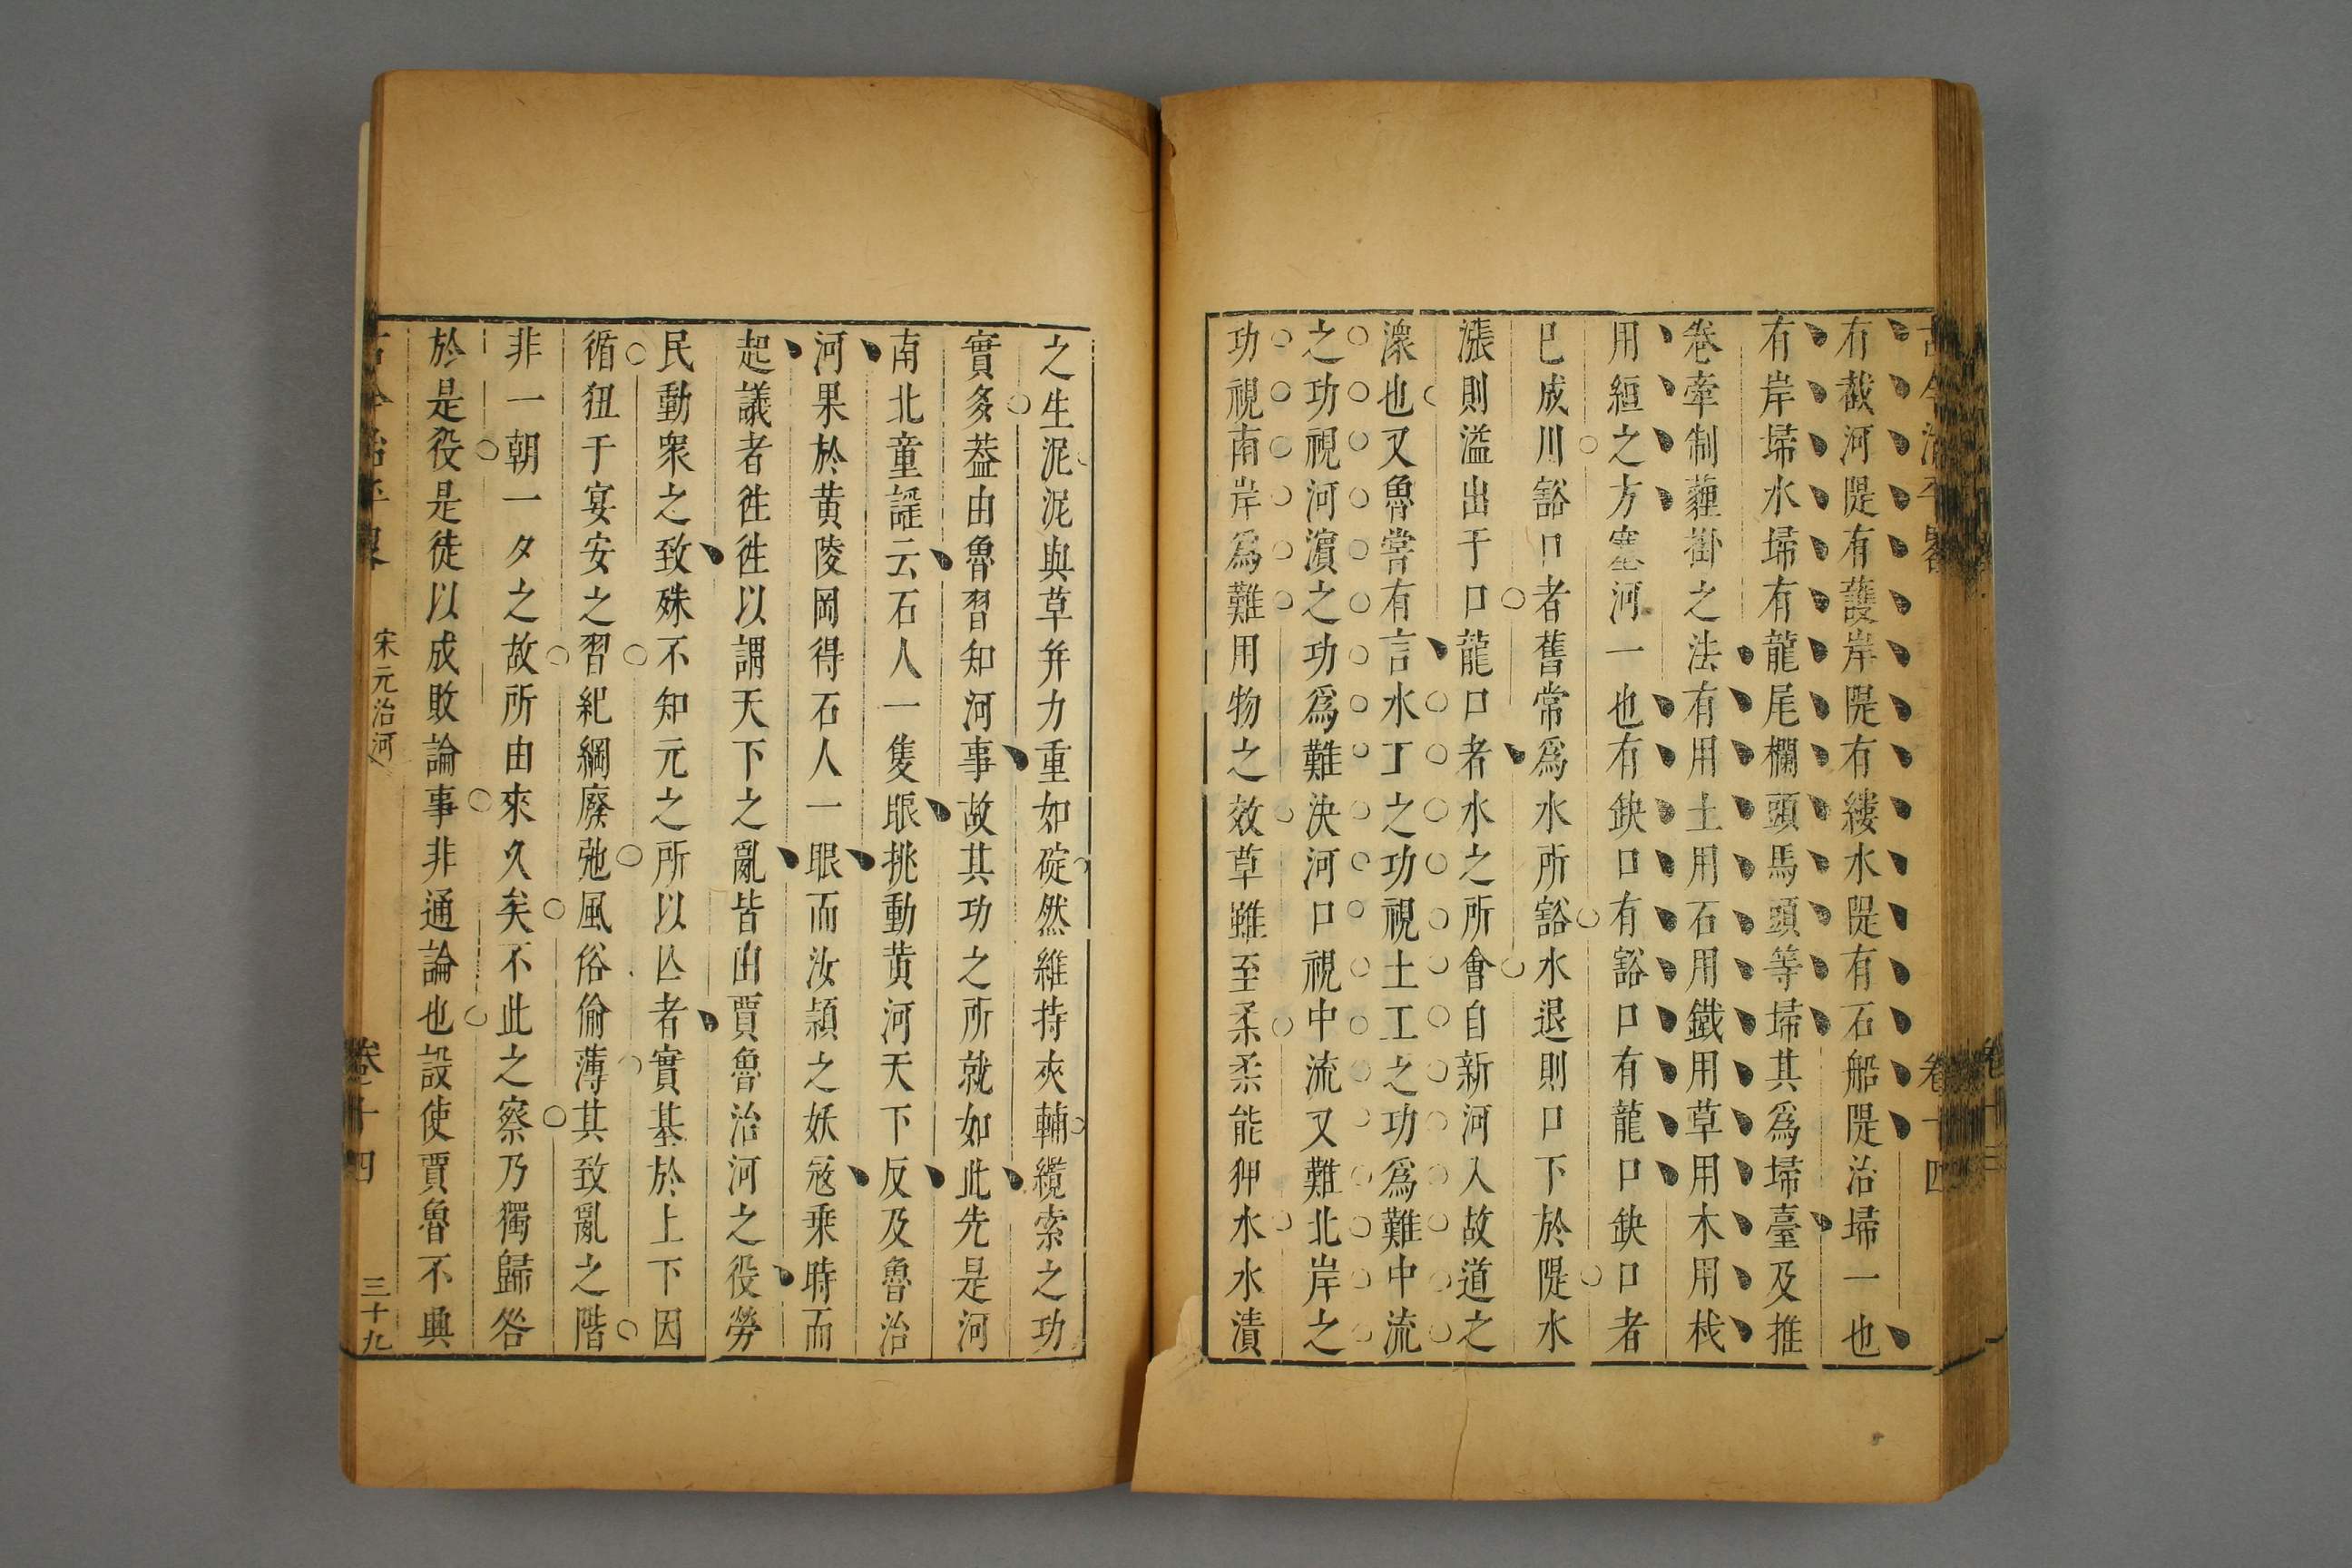 有截河隄有護岸隄有縷水隄有石船隄治埽一也
有岸埽水埽有龍尾欄頭馬頭等埽其爲埽臺及推
卷牽制薶掛之法有用土用石用鐵用草用木用栈
用絙之方塞河一也有鈌口有豁口有龍口鈌口者
已成川豁口者舊常爲水所豁水退則口下於隄水
漲則溢出于口龍口者水之所會自新河入故道之
潨也又魯嘗有言水工之功視土工之功爲難中流
之功視河濵之功爲難決河口視中流又難北岸之
功視南岸爲難用物之效草雖至柔柔能狎水水漬
之生泥泥與草并力重如碇然維持夾輔纜索之功
實多葢由魯習知河事故其功之所就如此先是河
南北童謡云石人一隻眼挑動黄河天下反及魯治
河果於黄陵岡得石人一眼而汝頴之妖宼乗時而
起議者徃徃以謂天下之亂皆由賈魯治河之役勞
民動衆之致殊不知元之所以亾者實基於上下因
循狃于宴安之習紀綱廢弛風俗偷薄其致亂之階
非一朝一夕之故所由來久矣不此之察乃獨歸咎
於是役是徒以成敗論事非通論也設使賈魯不興
宋元治河
卷十四
三十九